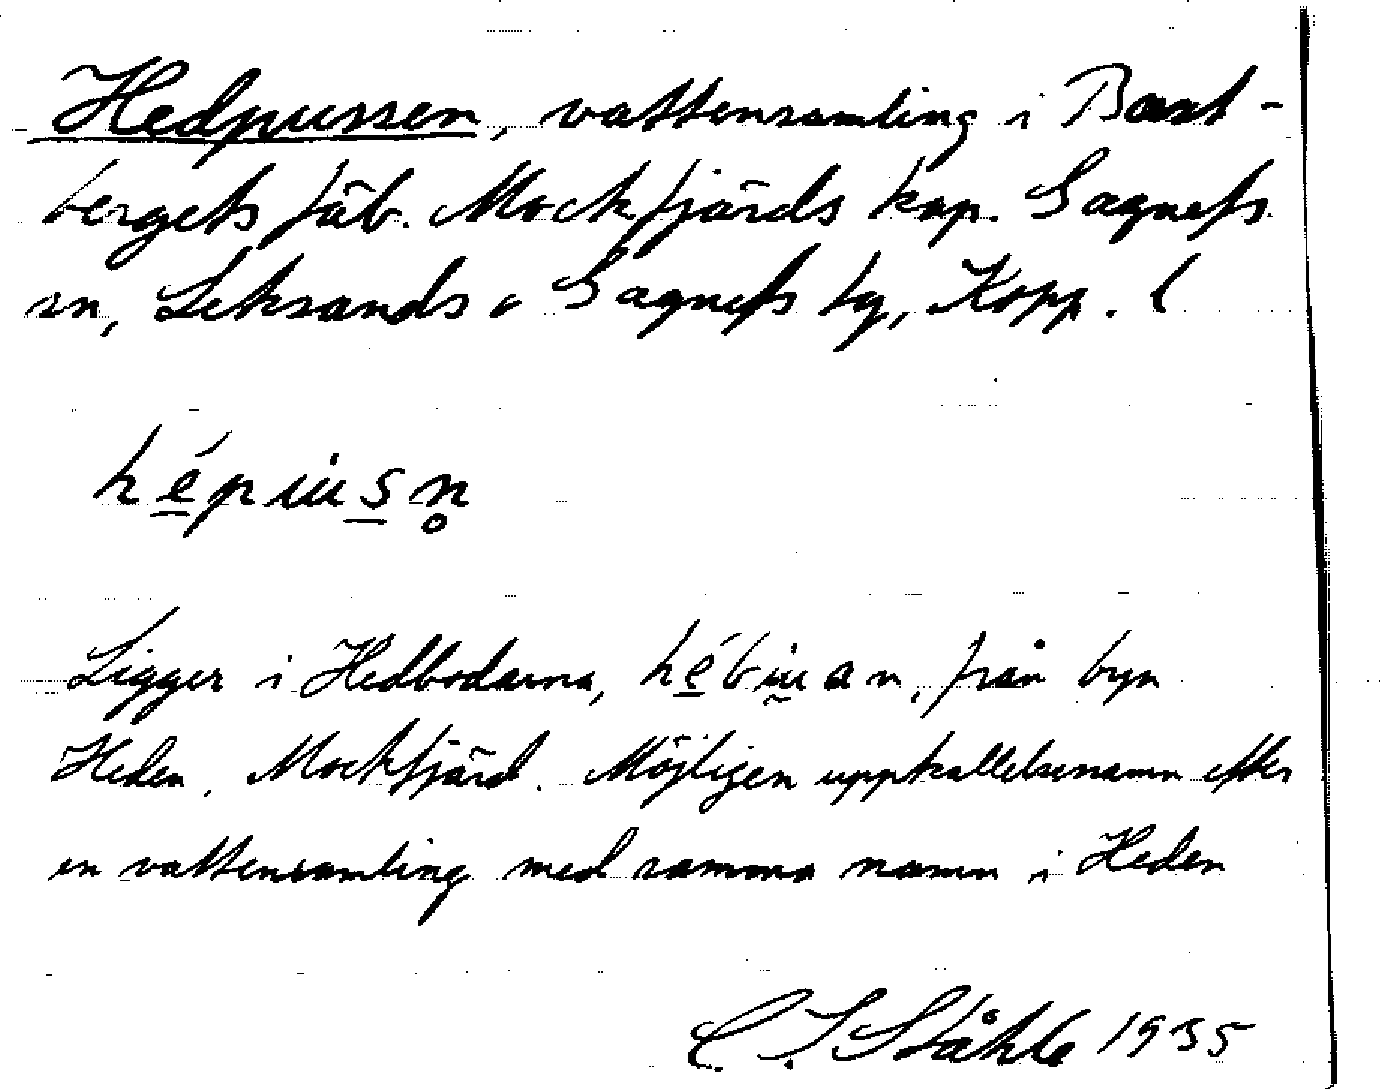 Hedpussen, vattensamling i Bast-
bergets fäb. Mockfjärds kap. Gagnefs
sn, Leksands o Gagnefs tg, Kopp. l
hépiusn̥
Ligger i Hedbodarna, hébiuan, från byn
Heden, Mockfjärd. Möjligen uppkallelsenamn efter
en vattensamling med samma namn i Heden
C. I. Ståhle 1935